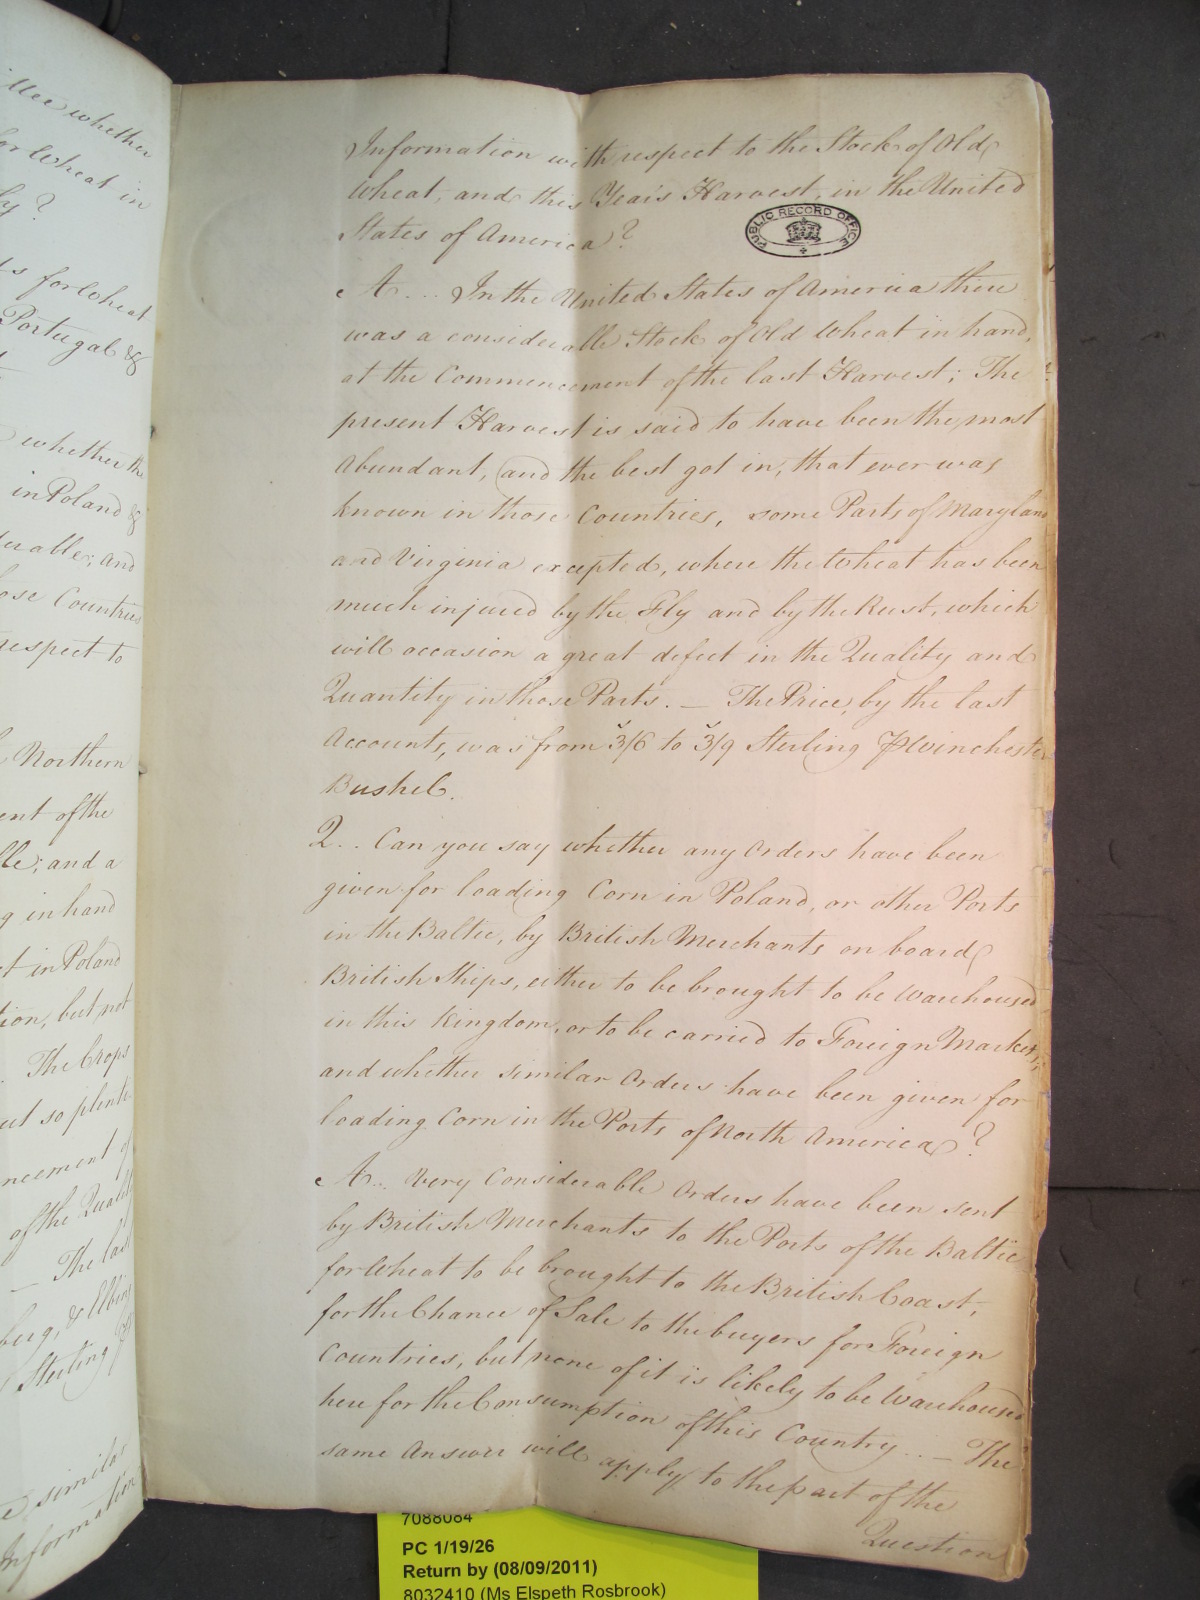 ttee whether
for Wheat in
ly?
ts for Wheat
Portugal &
whether the
in Poland &
erable; and
ose Countries
respect to
Northern
ent of the
ble; and a
g in hand
t in Poland
tion, but not
The Crops
ut so plenti
ncement of
of the Quality
— The last
berg, & Elbing
Sterling
similar
Information
Information with respect to the Stock of Old
Wheat, and this Year's Harvest, in the United
States of America?
PUBLIC RECORD OFFICE
A... In the United States of America there
was a considerable Stock of Old Wheat in hand,
at the Commencement of the last Harvest; The
present Harvest is said to have been the most
Abundant, and the best got in, that ever was
known in those Countries, some Parts of Maryland
and Virginia excepted, where the Wheat has been
much injured by the Fly and by the Rust, which
will occasion a great defect in the Quality and
Quantity in those Parts. — The Price, by the last
Accounts, was from 3/6 to 3/9 Sterling ⅌ Winchester
Bushel.
Q.. Can you say whether any Orders have been
given for loading Corn in Poland, or other Ports
in the Baltic, by British Merchants on board
British Ships, either to be brought to be Warehoused
in this Kingdom, or to be carried to Foreign Markets,
and whether similar Orders have been given for
loading Corn in the Ports of North America?
A.. Very Considerable Orders have been sent
by British Merchants to the Ports of the Baltic
for Wheat to be brought to the British Coast,
for the Chance of Sale to the buyers for Foreign
Countries, but none of it is likely to be Warehoused
here for the Consumption of this Country.. — The
same Answer will apply to the part of the
Question
7088084
PC 1/19/26
Return by (08/09/2011)
8032410 (Ms Elspeth Rosbrook)